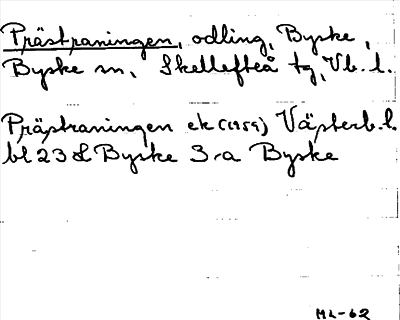 Prästraningen, odling, Byske,
Byske sn, Skellefteå tg, Vb. l.
Prästraningen ek (1959) Västerb. l.
bl 23 d Byske 3-a Byske
ML-62